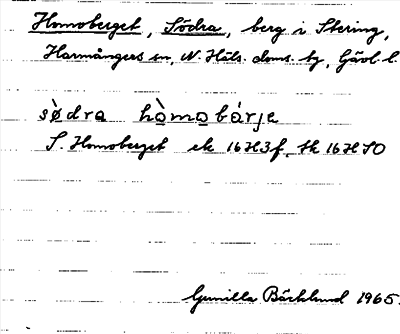 Homoberget, Södra, berg i Stering,
Harmångers sn, N. Häls. doms. by, Gävl. l.
sö̀dra hòmobárje
S. Homoberget ek 16H3f, Hk 16H SO
Gunilla Bäcklund 1965.